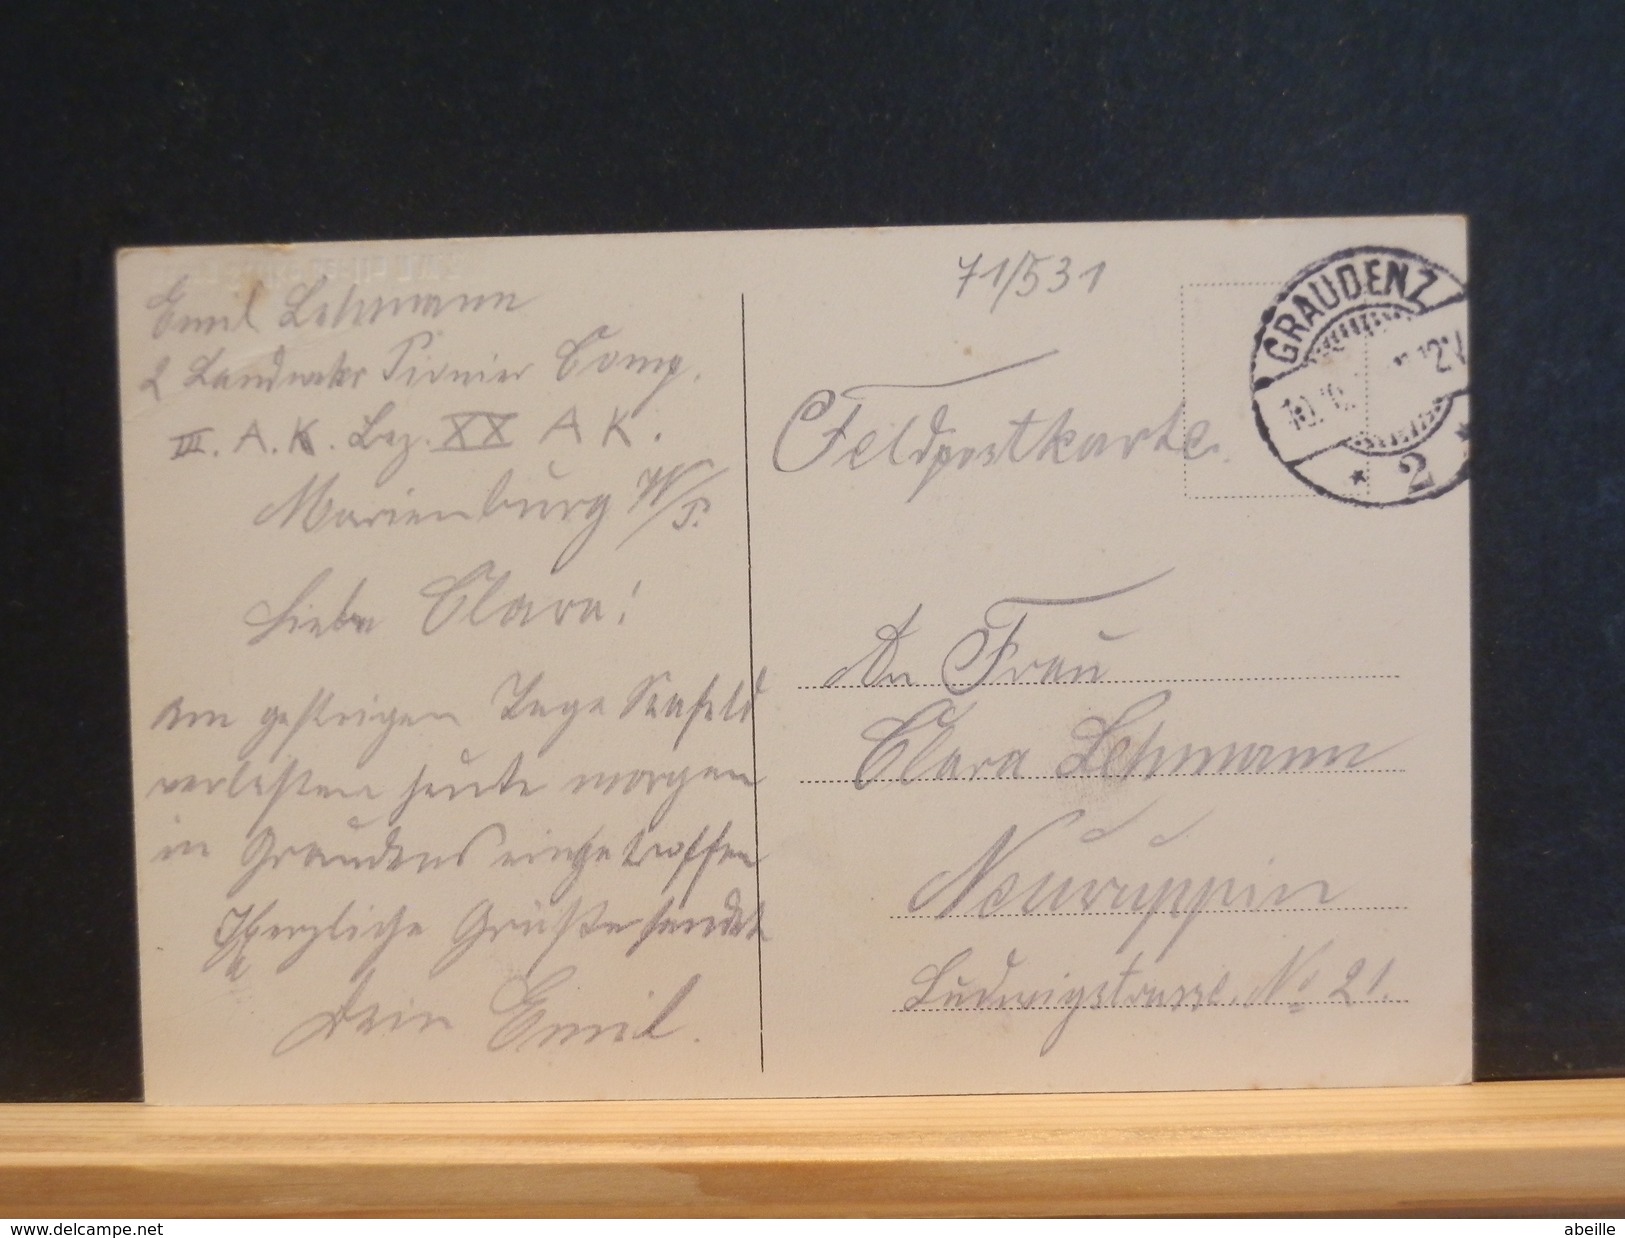 Emil Lehmann
2 Landwehr Pionier Comp.
III. A. K. Bez. XX A K.
Marienburg W/P.
Liebe Clara!
Am gestrigen Tage
verlassen heute morgen
in Graudenz eingetroffen
Herzliche Grüße sendet
Dein Emil.
71/531
GRAUDENZ
* 2 *
Feldpostkarte.
An Frau
Clara Lehmann
Neuruppin
Ludwigstrasse. No 21.
www.delcampe.net
abeille